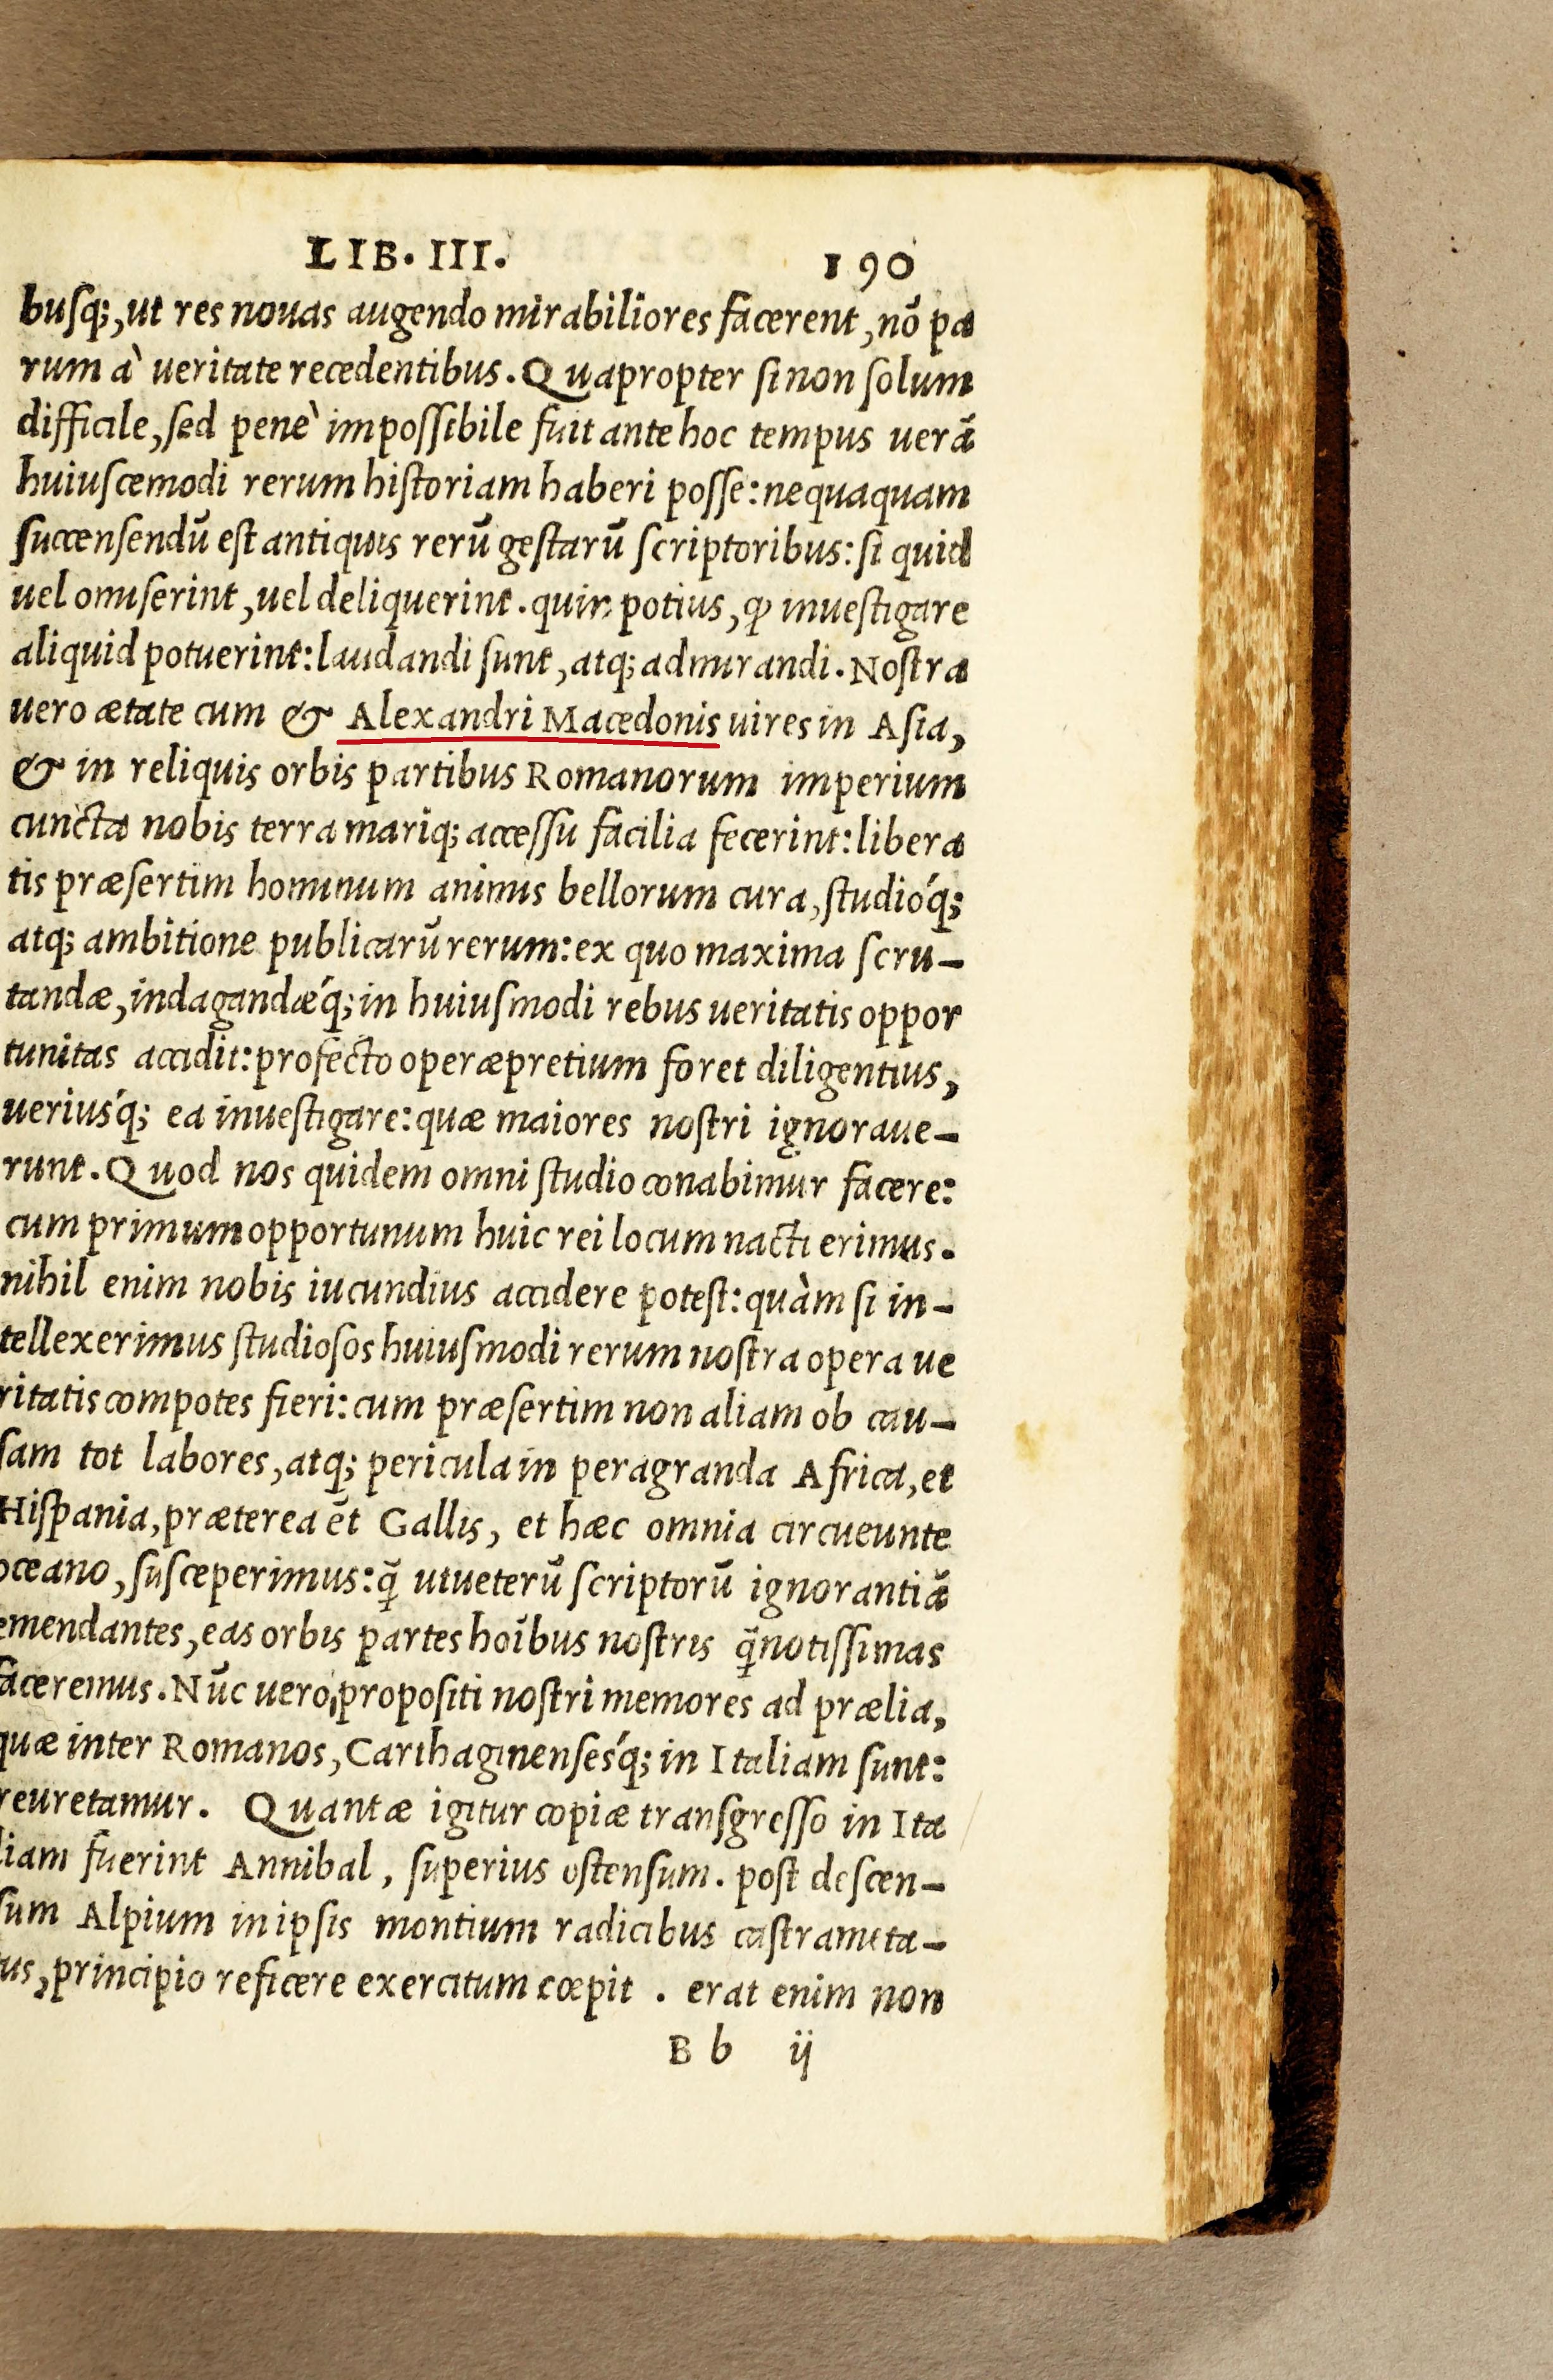 LIB. III. 190
busq;, ut res nouas augendo mirabiliores facerent, nō pa
rum à ueritate recedentibus. Quapropter si non solum
difficile, sed penè impossibile fuit ante hoc tempus uerā
huiuscemodi rerum historiam haberi posse: nequaquam
succensendū est antiquis rerū gestarū scriptoribus: si quid
uel omiserint, uel deliquerint. quin potius, ꝙ inuestigare
aliquid potuerint: laudandi sunt, atq; admirandi. Nostra
uero ætate cum & Alexandri Macedonis uires in Asia,
& in reliquis orbis partibus Romanorum imperium
cuncta nobis terra mariq; accessu facilia fecerint: libera
tis præsertim hominum animis bellorum cura, studióq;
atq; ambitione publicarū rerum: ex quo maxima scru-
tandæ, indagandǽq; in huiusmodi rebus ueritatis oppor
tunitas accidit: profecto operæpretium foret diligentius,
ueriusq́; ea inuestigare: quæ maiores nostri ignoraue-
runt. Quod nos quidem omni studio conabimur facere:
cum primum opportunum huic rei locum nacti erimus.
nihil enim nobis iucundius accidere potest: quàm si in-
tellexerimus studiosos huiusmodi rerum nostra opera ue
ritatis compotes fieri: cum præsertim non aliam ob cau-
sam tot labores, atq; pericula in peragranda Africa, et
Hispania, præterea ēt Gallis, et hæc omnia circueunte
oceano, susceperimus: q̄ ut ueterū scriptorū ignorantiā
emendantes, eas orbis partes hoībus nostris q̄notissimas
faceremus. Nūc uero propositi nostri memores ad prælia,
quæ inter Romanos, Carthaginensesq́; in Italiam sunt:
reuretamur. Quantæ igitur copiæ transgresso in Ita
liam fuerint Annibal, superius ostensum. post descen-
sum Alpium in ipsis montium radicibus castrameta-
tus, principio reficere exercitum cœpit. erat enim non
B b ij